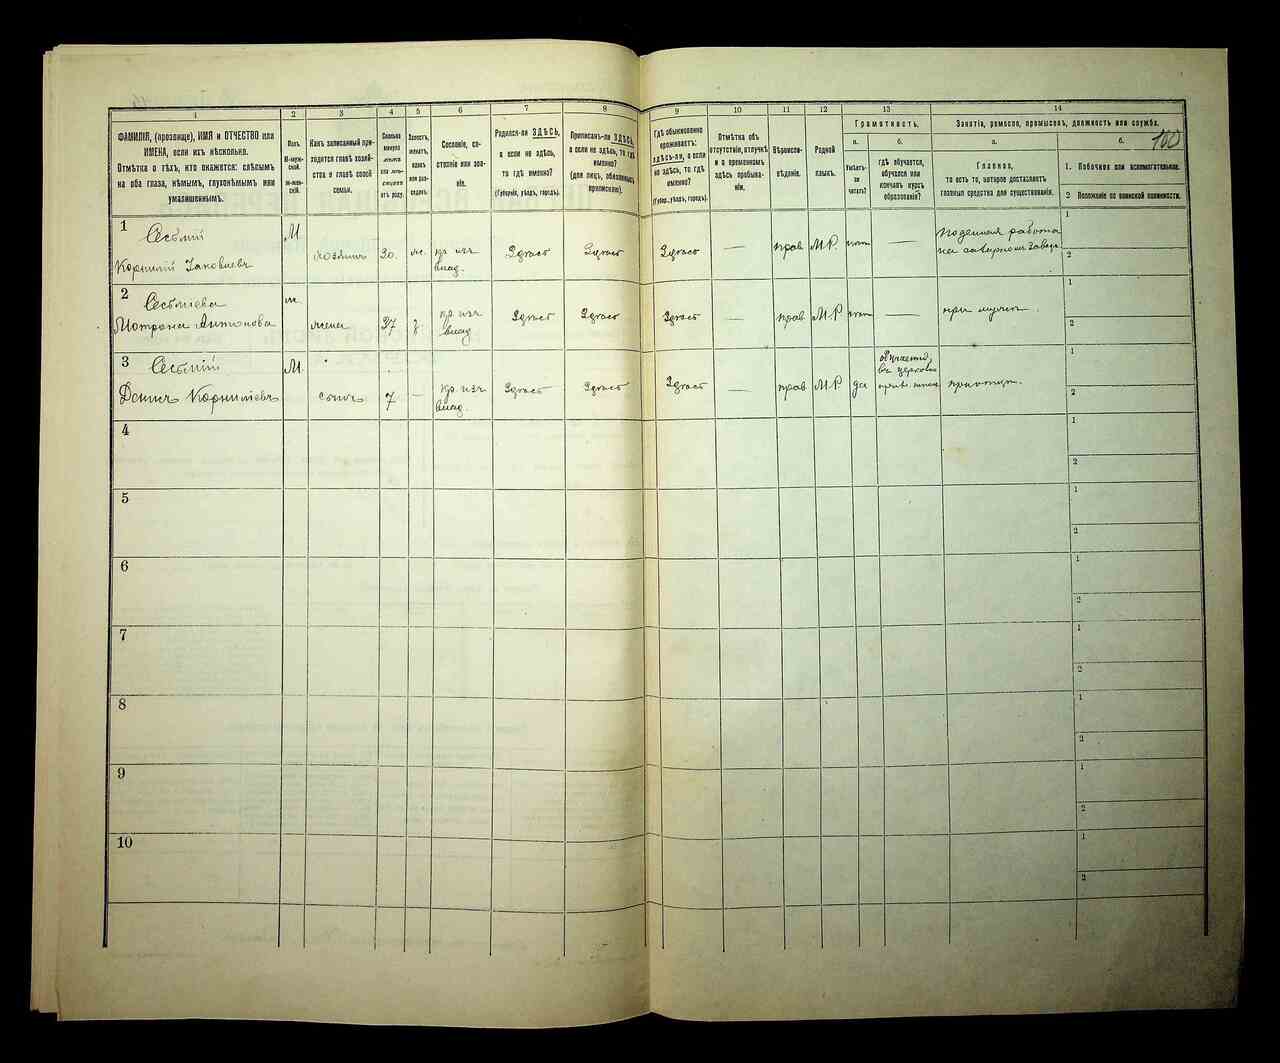 1
2
3
4
5
6
7
8
9
10
11
12
13
14
ФАМИЛІЯ, (прозвище), ИМЯ и ОТЧЕСТВО или
ИМЕНА, если ихъ нѣсколько.
Отмѣтка о тѣхъ, кто окажется: слѣпымъ
на оба глаза, нѣмымъ, глухонѣмымъ или
умалишеннымъ.
Полъ.
М-муж-
ской.
ж-жен-
скій.
Какъ записанный при-
ходится главѣ хозяй-
ства и главѣ своей
семьи.
Сколько
минуло
лѣтъ
или мѣ-
сяцевъ
отъ роду.
Холостъ,
женатъ,
вдовъ
или раз-
веденъ.
Сословіе, со-
стояніе или зва-
ніе.
Родился-ли ЗДѢСЬ,
а если не здѣсь,
то гдѣ именно?
(Губернія, уѣздъ, городъ).
Приписанъ-ли ЗДѢСЬ,
а если не здѣсь, то гдѣ
именно?
(для лицъ, обязанныхъ
припискою).
Гдѣ обыкновенно
проживаетъ:
здѣсь-ли, а если
не здѣсь, то гдѣ
именно?
(Губер., уѣздъ, городъ).
Отмѣтка объ
отсутствіи, отлучкѣ
и о временномъ
здѣсь пребыва-
ніи.
Вѣроиспо-
вѣданіе.
Родной
языкъ.
Грамотность.
а.
б.
Умѣетъ-
ли
читать?
гдѣ обучается,
обучался или
кончилъ курсъ
образованія?
Занятіе, ремесло, промыселъ, должность или служба.
а.
б.
100
Главное,
то есть то, которое доставляетъ
главныя средства для существованія.
1. Побочное или вспомогательное.
2 Положеніе по воинской повинности.
1
М
Корнилій Іаковлевъ
хозяинъ
30.
кр. изъ
влад.
Здѣсь
Здѣсь
Здѣсь
—
прав
М.Р.
—
Поденная работа
на сахарномъ заводѣ
1
2
2
м.
Мотрона Антонова
жена
37
кр. изъ
влад.
Здѣсь
Здѣсь
Здѣсь
—
прав
М.Р.
—
при мужѣ.
1
2
3
М.
Корниліевъ
сынъ
7
—
кр. изъ
влад.
Здѣсь
Здѣсь
Здѣсь
—
прав
М.Р.
да
обучается
въ церковно
при отцѣ.
1
2
4
1
2
5
1
2
6
1
2
7
1
2
8
1
2
9
1
2
10
1
2